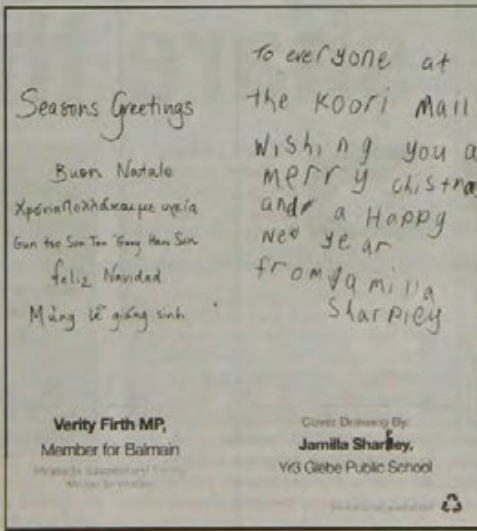 Seasons Greetings
Buon Natale
Χρόνια Πολλά και με υγεία
Gun tso Sun Tan 'Gung Haw Sun
feliz Navidad
Mừng lễ giáng sinh
Verity Firth MP,
Member for Balmain
To everyone at
the Koori Mail
Wishing you a
merry chistmas
and a Happy
New year
from Jamilla
Sharpley
Cover Drawing By:
Jamilla Sharpley,
Yr3 Glebe Public School